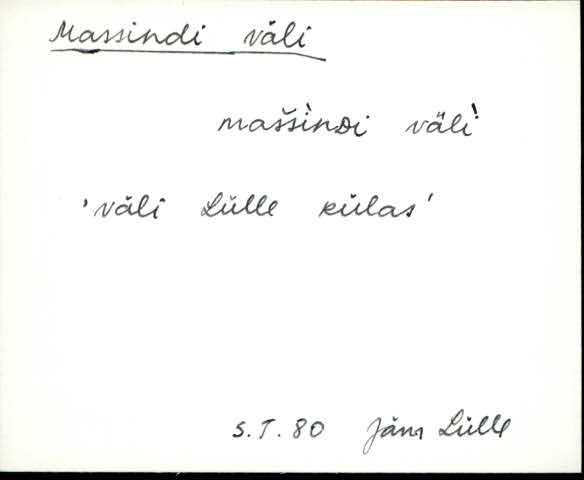 Massindi väli
mašsìnᴅi väli
'väli Lülle külas'
S.T. 80 Jäm Lülle